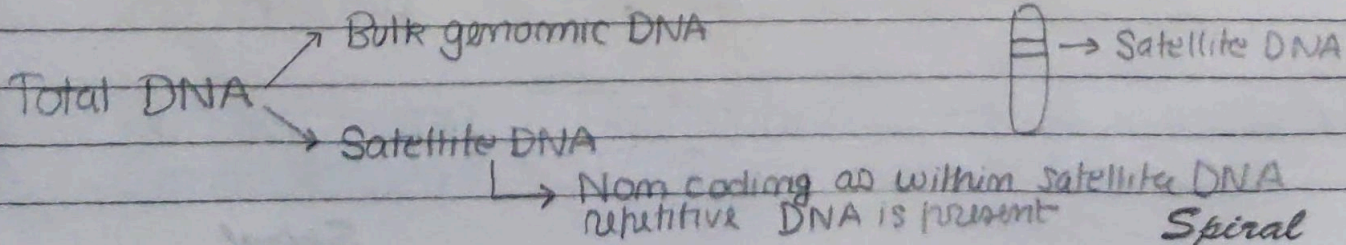 Bulk genomic DNA
→ Satellite DNA
Total DNA
Satellite DNA
Non coding as within satellite DNA
repetitive DNA is present
Spiral